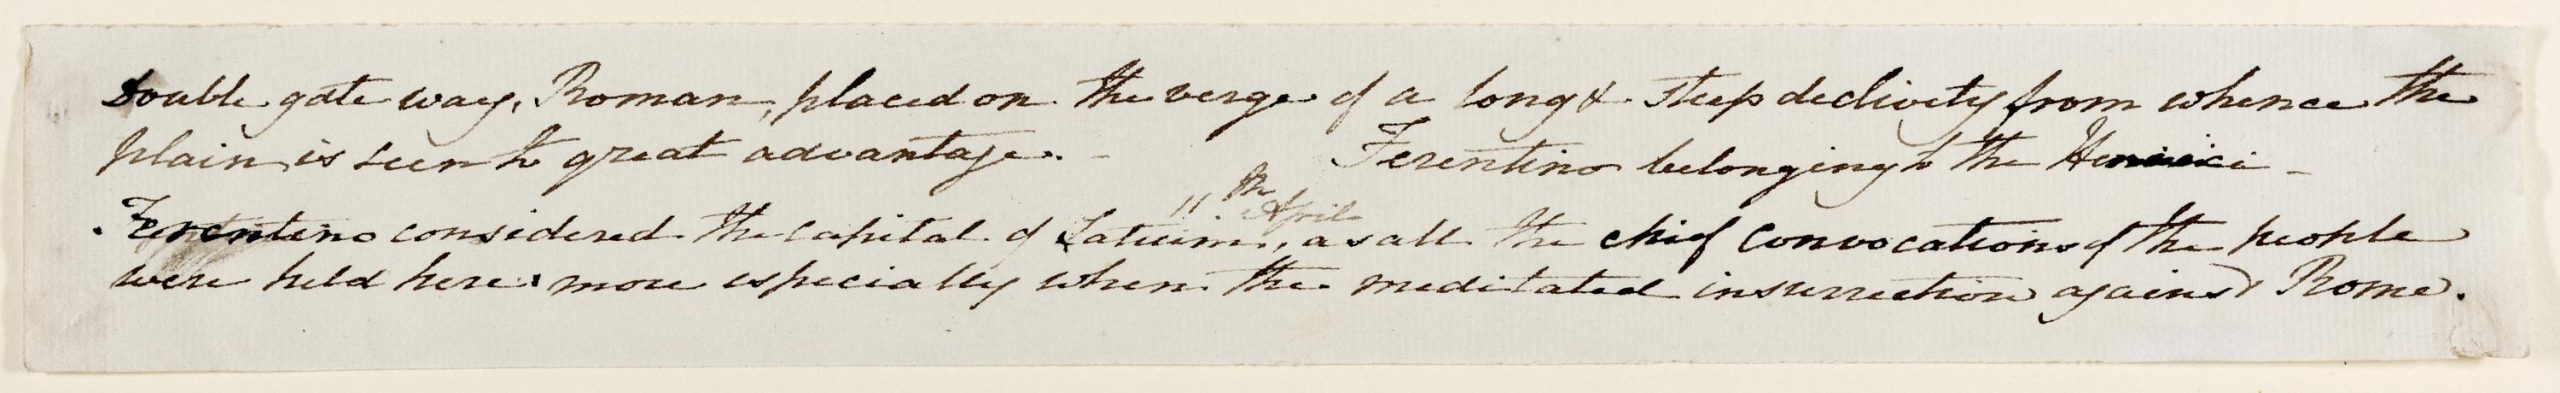 Double gate way, Roman, placed on the verge of a long & steep declivity from whence the
plain is seen to great advantage. -
Ferentino belonging to the Hernici -
11th April
Ferentino considered the capital of Latium, as all the chief convocations of the people
were held here more especially when the meditated insurrection against Rome.